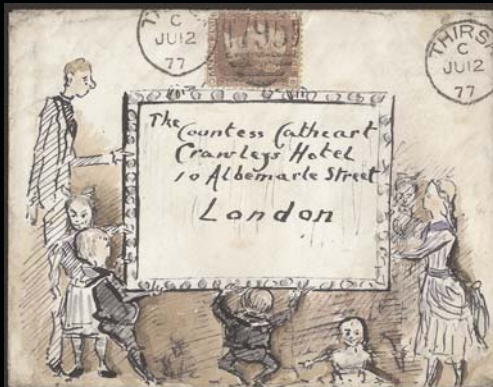 THIRSK
C
JU 12
77
795
THIRSK
C
JU 12
77
The
Countess Cathcart
Crawley's Hotel
10 Albemarle Street
London